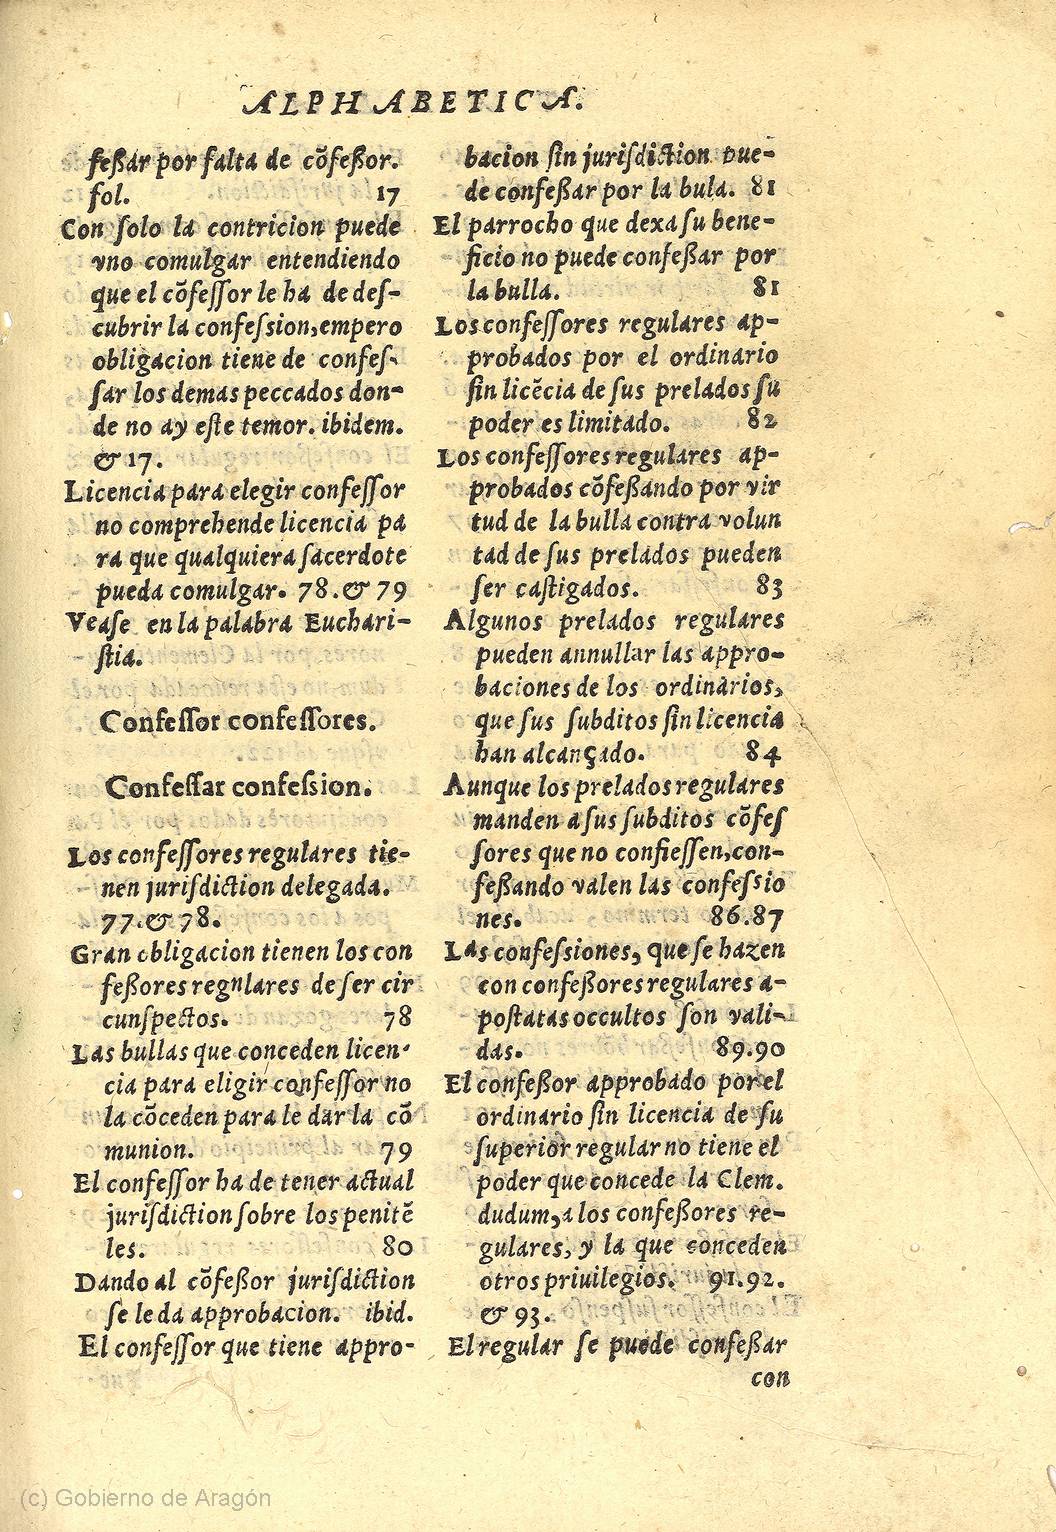 ALPHABETICA.
feßar por falta de cõfeßor.
fol. 17
Con ſolo la contricion puede
vno comulgar entendiendo
que el cõfeſſor le ha de deſ-
cubrir la confeſsion, empero
obligacion tiene de confeſ-
ſar los demas peccados don-
de no ay eſte temor. ibidem.
& 17.
Licencia para elegir confeſſor
no comprehende licencia pa
ra que qualquiera ſacerdote
pueda comulgar. 78. & 79
Veaſe en la palabra Euchari-
ſtia.
Confeſſor confeſſores.
Confeſſar confeſsion.
Los confeſſores regulares tie-
nen juriſdiction delegada.
77. & 78.
Gran obligacion tienen los con
feßores regulares de ſer cir
cunſpectos. 78
Las bullas que conceden licen-
cia para eligir confeſſor no
la cõceden para le dar la cõ
munion. 79
El confeſſor ha de tener actual
juriſdiction ſobre los penitẽ
les. 80
Dando al cõfeßor juriſdiction
ſe le da approbacion. ibid.
El confeſſor que tiene appro-
bacion ſin juriſdiction pue-
de confeßar por la bula. 81
El parrocho que dexa ſu bene-
ficio no puede confeßar por
la bulla. 81
Los confeſſores regulares ap-
probados por el ordinario
ſin licẽcia de ſus prelados ſu
poder es limitado. 82
Los confeſſores regulares ap-
probados cõfeßando por vir
tud de la bulla contra volun
tad de ſus prelados pueden
ſer caſtigados. 83
Algunos prelados regulares
pueden annullar las appro-
baciones de los ordinarios,
que ſus ſubditos ſin licencia
han alcançado. 84
Aunque los prelados regulares
manden a ſus ſubditos cõfeſ
ſores que no confieſſen, con-
feßando valen las confeſsio
nes. 86.87
Las confeſsiones, que ſe hazen
con confeßores regulares a-
poſtatas occultos ſon vali-
das. 89.90
El confeßor approbado por el
ordinario ſin licencia de ſu
ſuperior regular no tiene el
poder que concede la Clem.
dudum, a los confeßores re-
gulares, y la que conceden
otros priuilegios. 91.92.
& 93.
El regular ſe puede confeßar
con
(c) Gobierno de Aragón